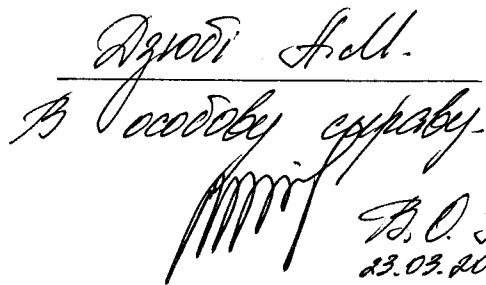 Дзюбі А.М.
В особову справу.
В.О.
23.03.20